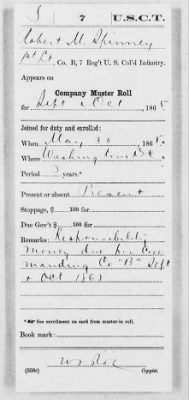 S 7 U.S.C.T.
Robert M. Spinney
1st Lt, Co. B, 7 Reg't U. S. Col'd Infantry.
Appears on
Company Muster Roll
for Sept & Oct, 186
Joined for duty and enrolled:
When May 186
Where Washington D.C.
Period 3 years.*
Present or absent Present
Stoppage, $ 100 for
Due Gov't $ 100 for
Remarks: Responsibility
money due for Com
manding Co "B" Sept
& Oct 186
* See enrollment on card from muster-in roll.
Book mark:
(358c) Copyist.